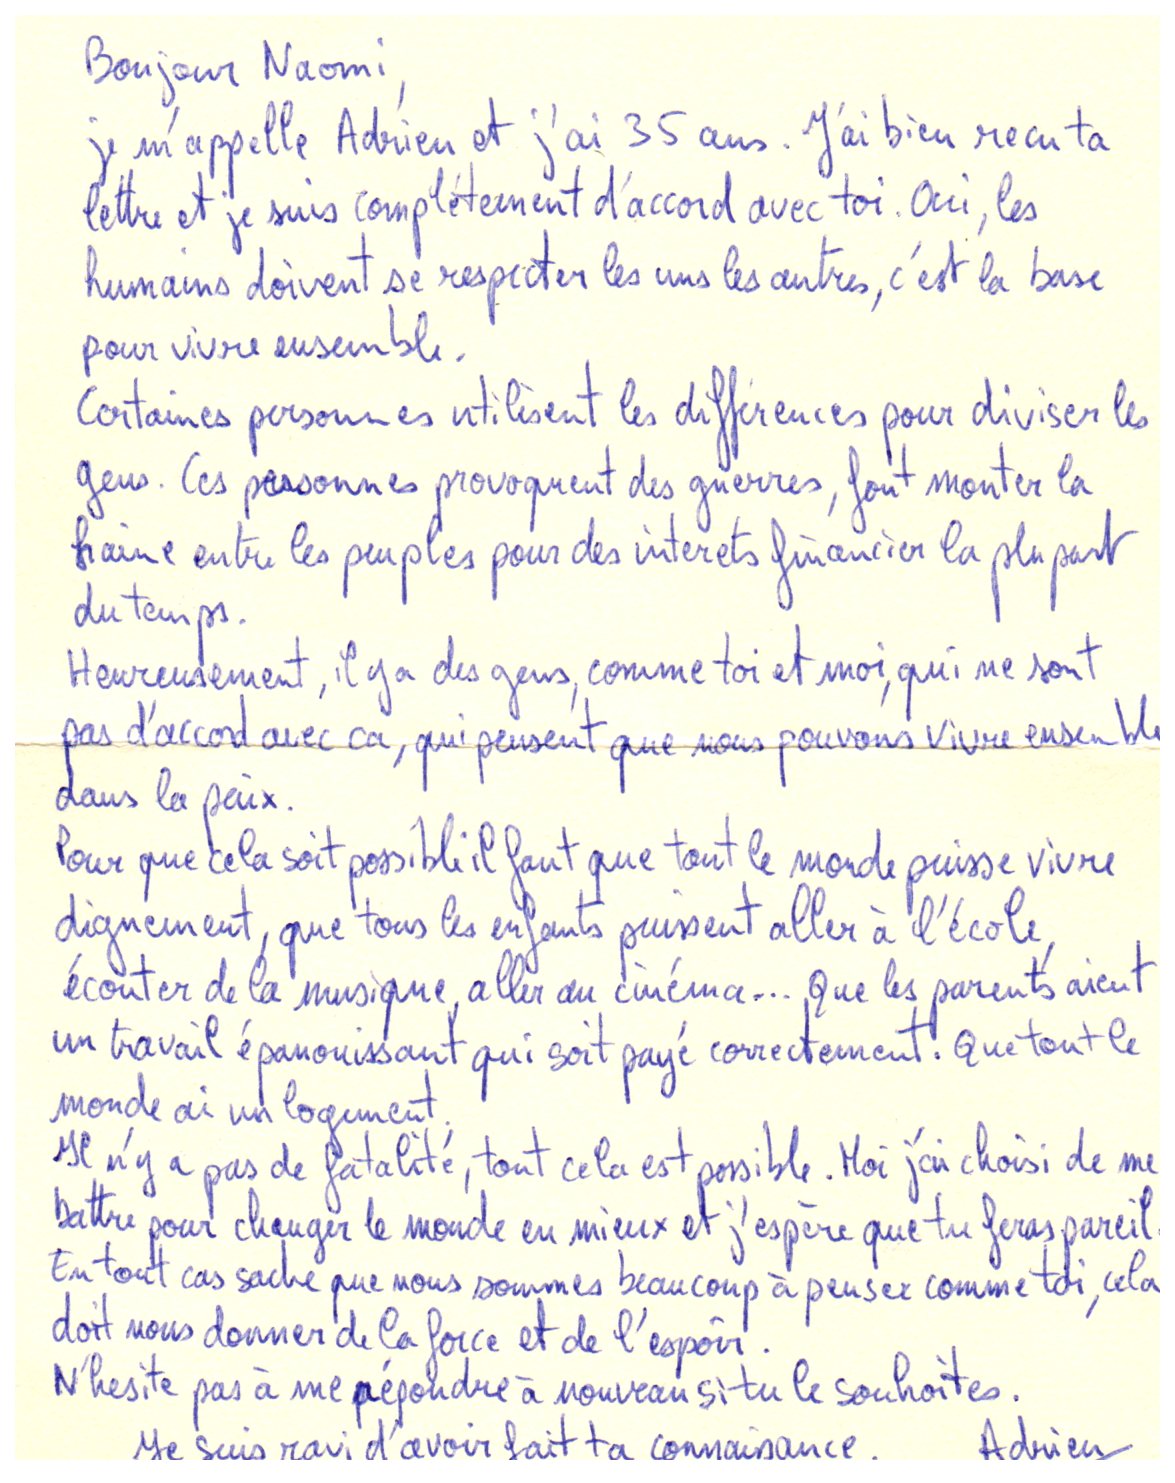 Bonjour Naomi,
je m'appelle Adrien et j'ai 35 ans. J'ai bien recu ta
lettre et je suis complétement d'accord avec toi. Oui, les
humains doivent se respecter les uns les autres, c'est la base
pour vivre ensemble.
Certaines personnes utilisent les différences pour diviser les
gens. Ces personnes provoquent des guerres, font monter la
haine entre les peuples pour des interets financier la plupart
du temps.
Heureusement, il y a des gens, comme toi et moi, qui ne sont
pas d'accord avec ca, qui pensent que nous pouvons vivre ensemble
dans la paix.
Pour que cela soit possible il faut que tout le monde puisse vivre
dignement, que tous les enfants puissent aller à l'école,
écouter de la musique, aller au cinéma... Que les parents aient
un travail épanouissant qui soit payé correctement. Que tout le
monde ai un logement.
Il n'y a pas de fatalité, tout cela est possible. Moi j'ai choisi de me
battre pour changer le monde en mieux et j'espère que tu feras pareil.
En tout cas sache que nous sommes beaucoup à penser comme toi, cela
doit nous donner de la force et de l'espoir.
N'hesite pas à me répondre à nouveau si tu le souhaites.
Je suis ravi d'avoir fait ta connaissance. Adrien